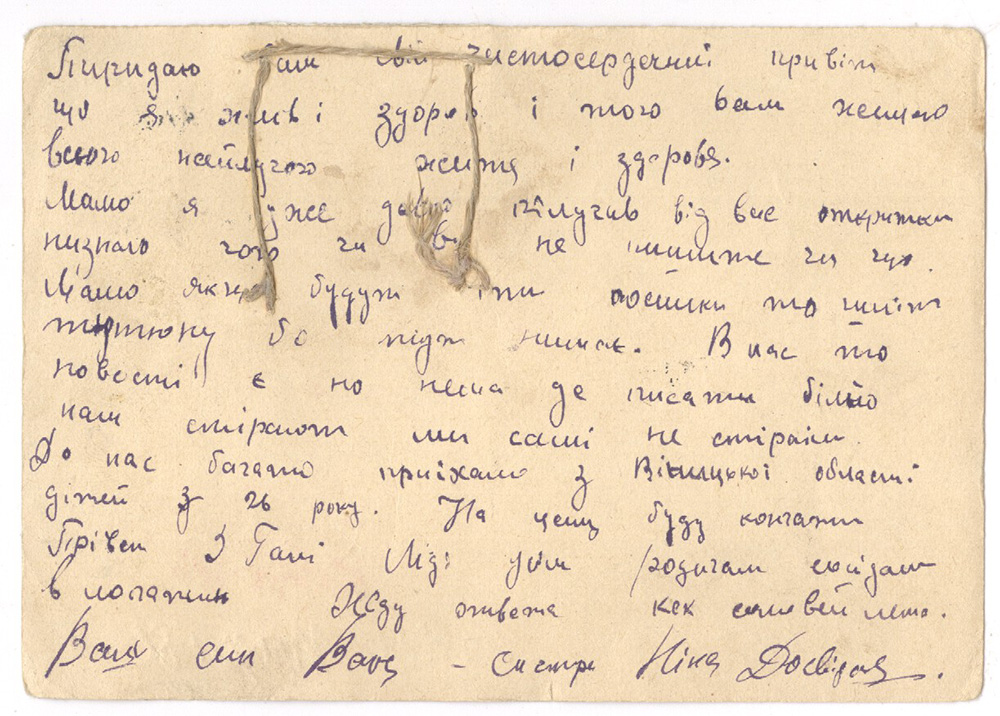 Пиридаю вам свій чистосердечний привіт
що я жив і здоров і того вам желаю
всього найлучого життя і здоровя.
Мамо я уже давно пілучав від вас открытки
низнаю чого чи ви не пишите чи що.
Мамо якщо будут іти посилки то шліт
тютюну бо підт нимає. В нас то
новості є но нема де писати білйо
нам стірают ми самі не стіраїм.
До нас багато приїхало з Віницької області
дітей з 26 року. На цему буду кончати
Прівет Гані усім родичам сосідам
Жду ответа как соловей лета.
Ваш син Ваня – систра Ніна Досвіданя.